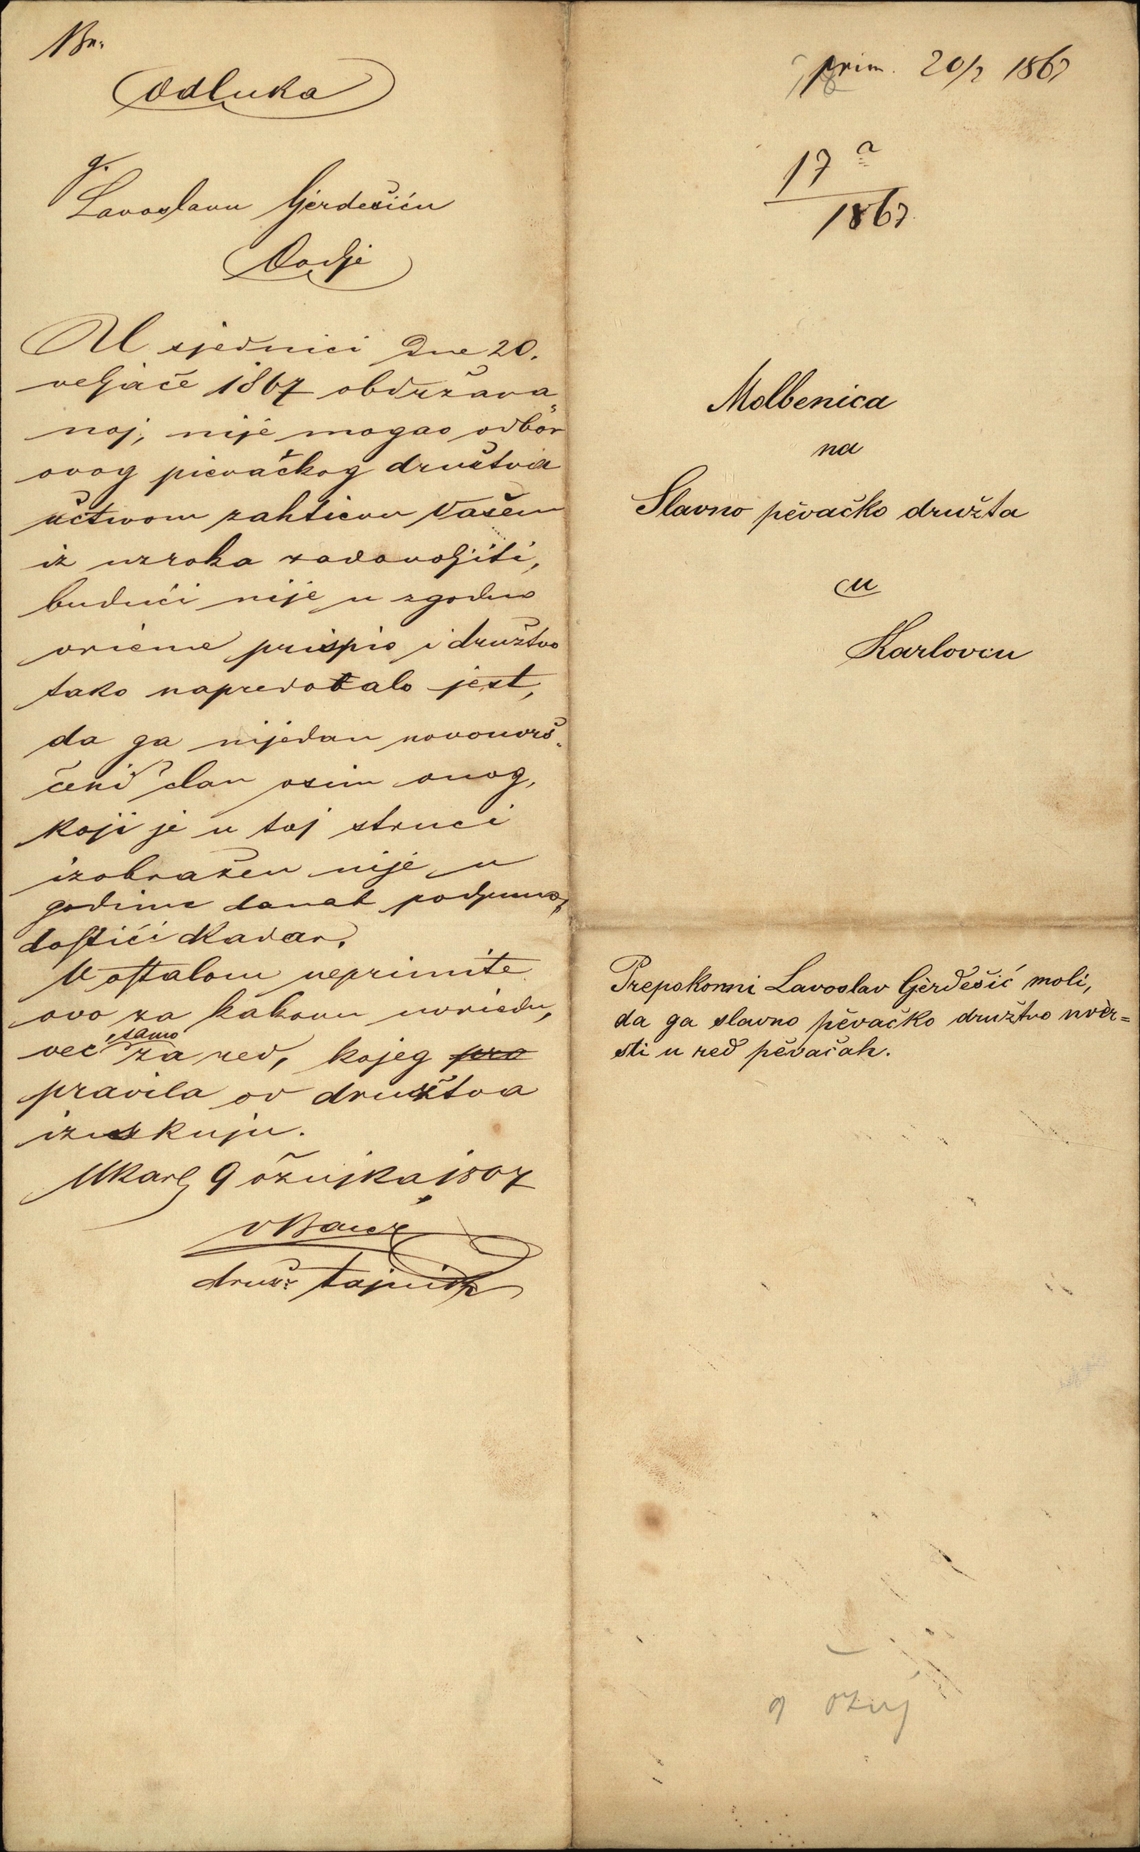 Br.
Odluka
g.
Lavoslavu Gjerdešiću
Ovdje
U sjednici dne 20.
veljače 1867 obdržava
noj, nije mogao odbor
ovog pievačkog družtva
uctivom zahtievu Vašem
iz uzroka zadovoljiti,
budući nije u zgodno
vrieme prispio i družtvo
tako napredovalo jest,
da ga nijedan novouvrš-
ćeni član osim onog,
koji je u toj struci
izobražen nije, u
godinu danah podpuno
dostići kadar.
U ostalom neprimite
ovo za kakovu uvriedu,
već samo za red, kojeg pra
pravila ov družtva
izuskuju.
U Karl 9 ožujka 1867
druž. tajnik
prim. 20/2 1867
17 a
1867
Molbenica
na
Slavno pěvačko družta
u
Karlovcu
Prepokorni Lavoslav Gjerdešić moli,
da ga slavno pěvačko družtvo uvèr=
sti u red pěvačah.
9 ožuj